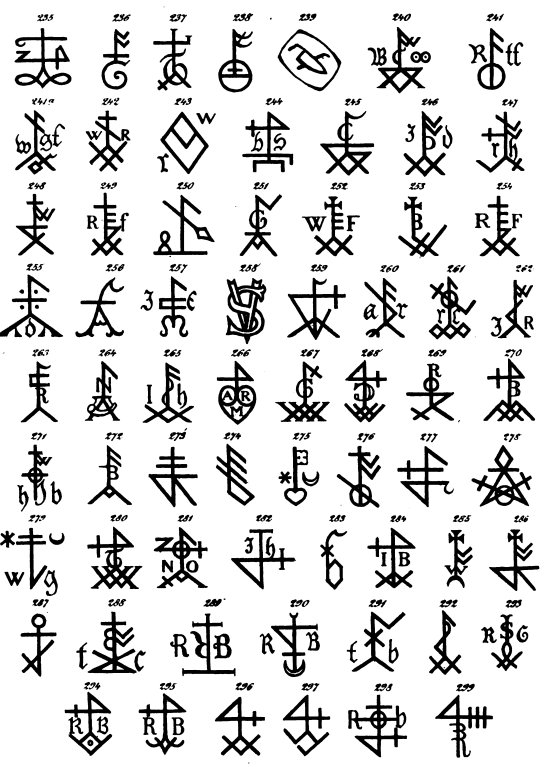 235 236 237 238 239 240 241
Z
W C
R tf
241a 242 243 244 245 246 247
w gf W R W r b S C J d r h
248 249 250 251 252 253 254
R f G W F B R F
255 256 257 258 259 260 261 262
d A J E S a r r r W J R
263 264 265 266 267 268 269 270
R N I h A R M G R B
271 272 273 274 275 276 277 278
h b B
279 280 281 282 283 284 285 286
W g Z N O J h I I B
287 288 289 290 291 292 293
t C R B R B t b R S G
294 295 296 297 298 299
R B R B R b R